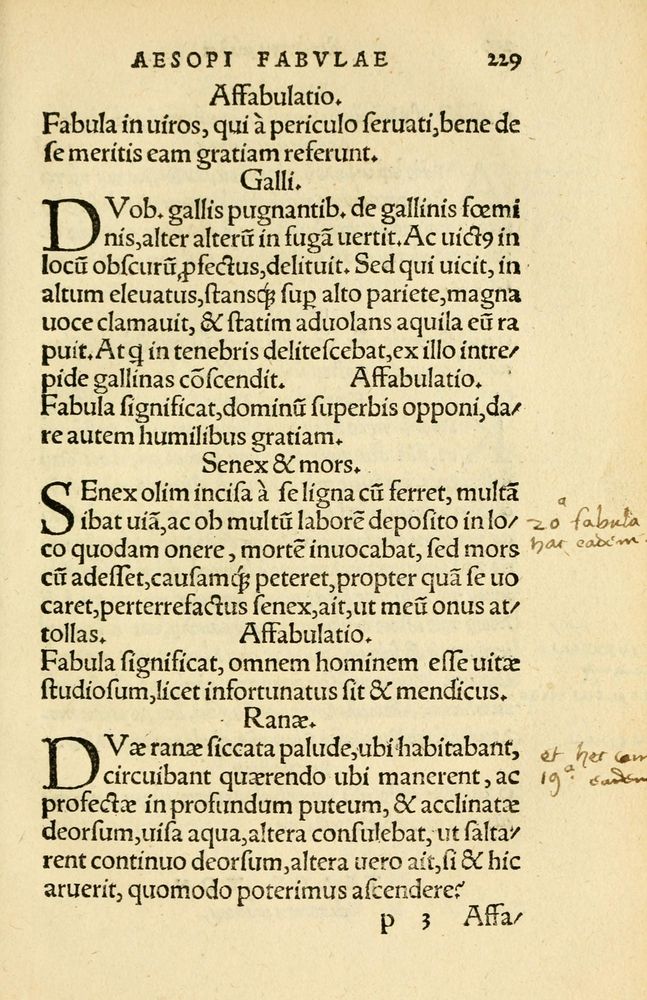 AESOPI FABVLAE 229
Aﬀabulatio.
Fabula in uiros, qui à periculo ſeruati, bene de
ſe meritis eam gratiam referunt.
Galli.
DVob. gallis pugnantib. de gallinis fœmi
nis, alter alterũ in fugã uertit. Ac uictꝰ in
locũ obſcurũ, ꝓfectus, delituit. Sed qui uicit, in
altum eleuatus, ſtansq́ꝫ suꝑ alto pariete, magna
uoce clamauit, & ſtatim aduolans aquila eũ ra
puit. At ꝗ in tenebris deliteſcebat, ex illo intre⸗
pide gallinas cõſcendit. Aﬀabulatio.
Fabula ſignificat, dominũ ſuperbis opponi, da⸗
re autem humilibus gratiam.
Senex & mors.
SEnex olim inciſa à ſe ligna cũ ferret, multã
ibat uiã, ac ob multũ laborẽ depoſito in lo⸗
co quodam onere, mortẽ inuocabat, sed mors
cũ adeſſet, cauſamq́ꝫ peteret, propter quã ſe uo
caret, perterrefactus ſenex, ait, ut meũ onus at⸗
tollas. Aﬀabulatio.
Fabula ſignificat, omnem hominem eſſe uitæ
ſtudioſum, licet infortunatus ſit & mendicus.
Ranæ.
DVæ ranæ ſiccata palude, ubi habitabant,
circuibant quærendo ubi manerent, ac
profectæ in profundum puteum, & acclinatæ
deorſum, uiſa aqua, altera conſulebat, ut ſalta⸗
rent continuo deorſum, altera uero ait, ſi & hic
aruerit, quomodo poterimus aſcendere?
p 3 Aﬀa⸗
20ᵃ fabula
hac eadem
et hec cum
19ᵃ eadem